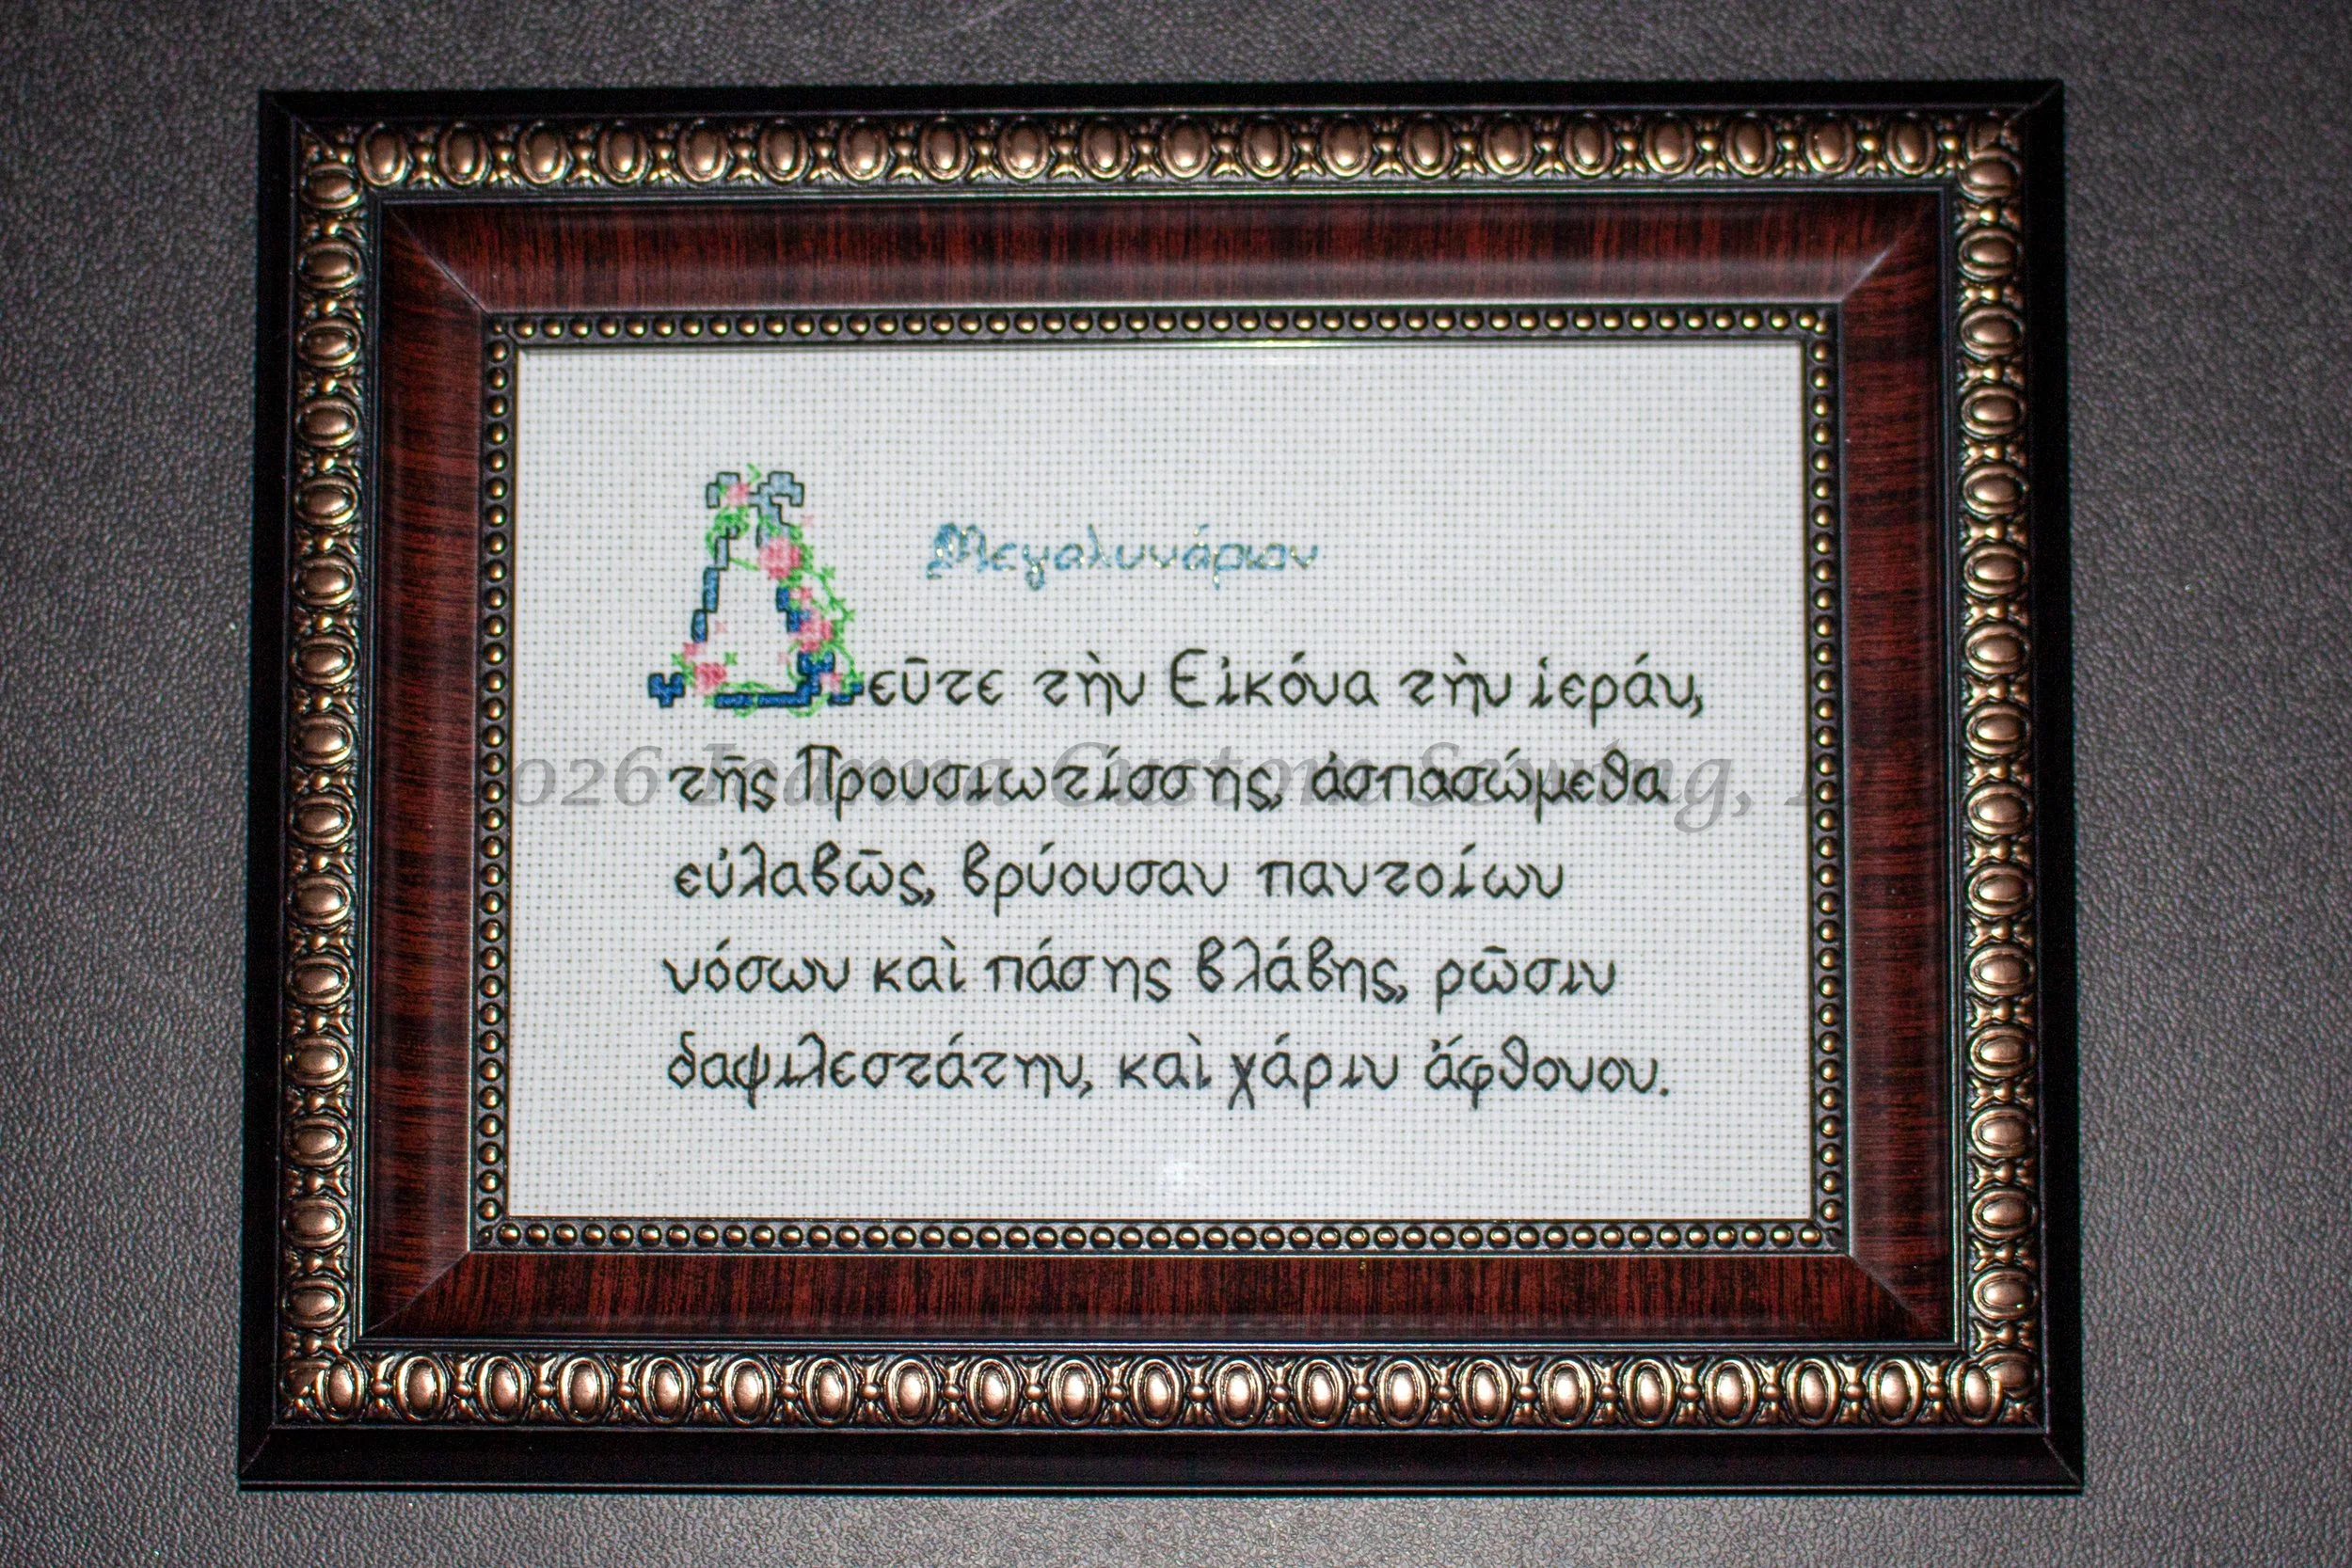 Μεγαλυνάριον
Δεῦτε τὴν Εἰκόνα τὴν ἱεράν,
τῆς Προυσιωτίσσης, ἀσπασώμεθα
εὐλαβῶς, βρύουσαν παντοίων
νόσων καὶ πάσης βλάβης, ρῶσιν
δαψιλεστάτην, καὶ χάριν ἄφθονον.
026 Ioanna Custom Sewing,